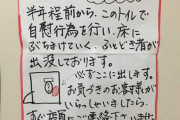 半年程前から、このトイレで
自慰行為を行い、床に
ぶちまけていく、ふとどき者が
出没しております。
必ずここに出します。
お気づきのお客様が
いらっしゃいましたら、
すぐ店員にご連絡下さいませ